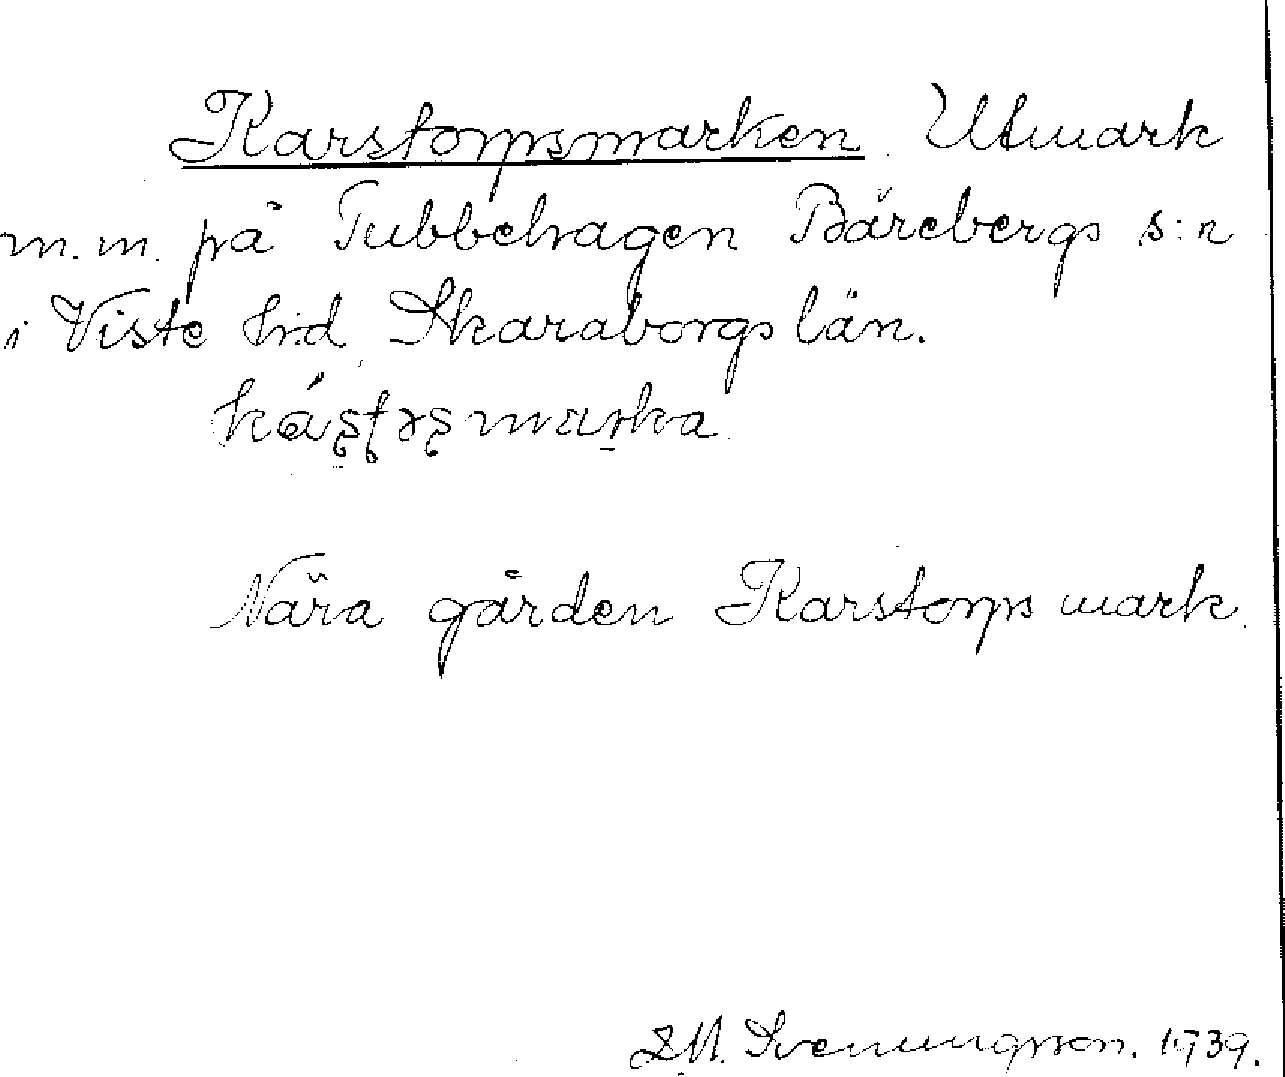 Karstorpsmarken. Utmark
m.m. på Tubbehagen Bärebergs s:n
i Viste hrd, Skaraborgs län.
Nära gården Karstorps mark.
Svenungsson. 1939.